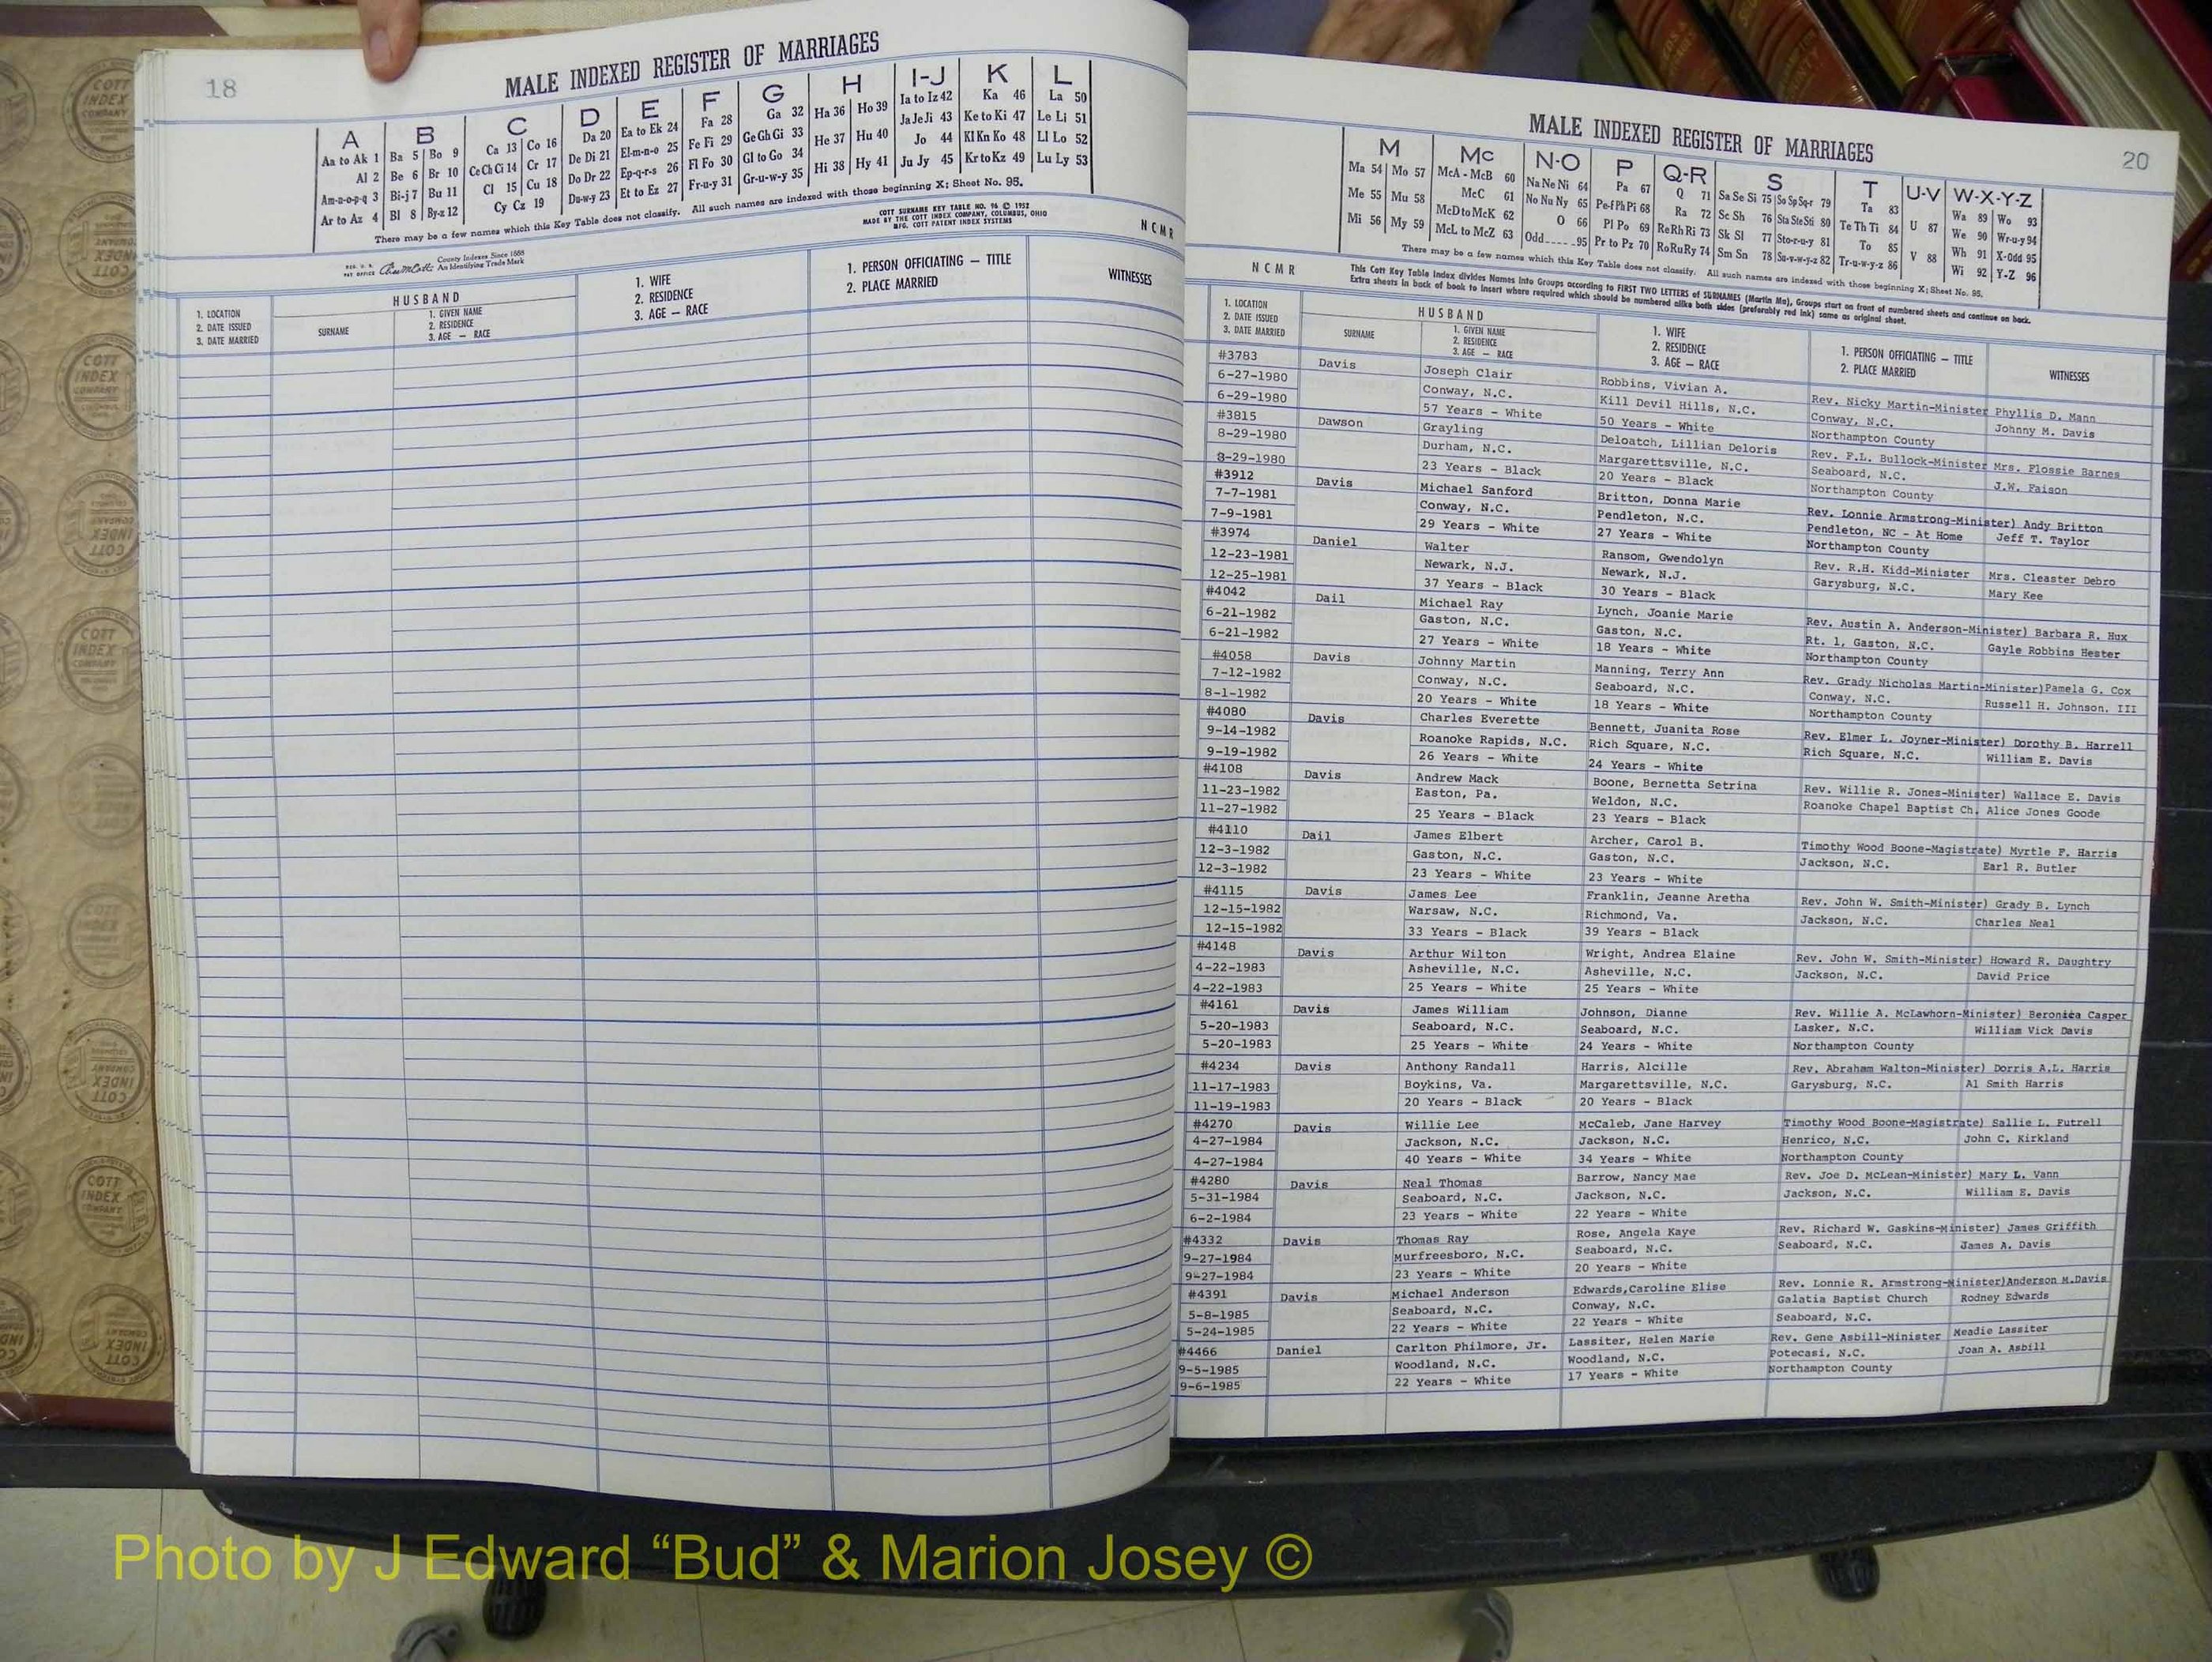 18
MALE INDEXED REGISTER OF MARRIAGES
A B C D E F G H I-J K L
Aa to Ak 1 Ba 5 Bo 9 Ca 13 Co 16 Da 20 Ea to Ek 24 Fa 28 Ga 32 Ha 36 Ho 39 Ia to Iz 42 Ka 46 La 50
Al 2 Be 6 Br 10 Ce Ch Ci 14 Cr 17 De Di 21 El-m-n-o 25 Fe Fi 29 Ge Gh Gi 33 He 37 Hu 40 Ja Je Ji 43 Ke to Ki 47 Le Li 51
Am-n-o-p-q 3 Bi-j 7 Bu 11 Cl 15 Cu 18 Do Dr 22 Ep-q-r-s 26 Fl Fo 30 Gl to Go 34 Hi 38 Hy 41 Jo 44 Kl Kn Ko 48 Ll Lo 52
Ar to Az 4 Bl 8 By-z 12 Cy Cz 19 Du-w-y 23 Et to Ez 27 Fr-u-y 31 Gr-u-w-y 35 Ju Jy 45 Kr to Kz 49 Lu Ly 53
There may be a few names which this Key Table does not classify. All such names are indexed with those beginning X; Sheet No. 95.
COTT SURNAME KEY TABLE NO. 96 © 1952
MADE BY THE COTT INDEX COMPANY, COLUMBUS, OHIO
MFG. COTT PATENT INDEX SYSTEMS
NCMR
County Indexes Since 1888
An Identifying Trade Mark
1. LOCATION
2. DATE ISSUED
3. DATE MARRIED
HUSBAND
SURNAME
1. GIVEN NAME
2. RESIDENCE
3. AGE — RACE
1. WIFE
2. RESIDENCE
3. AGE — RACE
1. PERSON OFFICIATING — TITLE
2. PLACE MARRIED
WITNESSES
MALE INDEXED REGISTER OF MARRIAGES
20
M Mc N-O P Q-R S T U-V W-X-Y-Z
Ma 54 Mo 57 McA - McB 60 Na Ne Ni 64 Pa 67 Q 71 Sa Se Si 75 So Sp Sq-r 79 Ta 83 U 87 Wa 89 Wo 93
Me 55 Mu 58 McC 61 No Nu Ny 65 Pe-f Ph Pi 68 Ra 72 Sc Sh 76 Sta Ste Sti 80 Te Th Ti 84 We 90 Wr-u-y 94
Mi 56 My 59 McD to McK 62 O 66 Pl Po 69 Re Rh Ri 73 Sk Sl 77 Sto-r-u-y 81 To 85 V 88 Wh 91 X-Odd 95
McL to McZ 63 Odd-----95 Pr to Pz 70 Ro Ru Ry 74 Sm Sn 78 Su-v-w-y-z 82 Tr-u-w-y-z 86 Wi 92 Y-Z 96
There may be a few names which this Key Table does not classify. All such names are indexed with those beginning X; Sheet No. 95.
NCMR
This Cott Key Table Index divides Names into Groups according to FIRST TWO LETTERS of SURNAMES (Martin Ma), Groups start on front of numbered sheets and continue on back.
Extra sheets in back of book to insert where required which should be numbered alike both sides (preferably red ink) same as original sheet.
1. LOCATION
2. DATE ISSUED
3. DATE MARRIED
HUSBAND
SURNAME
1. GIVEN NAME
2. RESIDENCE
3. AGE — RACE
1. WIFE
2. RESIDENCE
3. AGE — RACE
1. PERSON OFFICIATING — TITLE
2. PLACE MARRIED
WITNESSES
#3783 Davis Joseph Clair Robbins, Vivian A. Rev. Nicky Martin-Minister Phyllis D. Mann
6-27-1980 Conway, N.C. Kill Devil Hills, N.C. Conway, N.C. Johnny M. Davis
6-29-1980 57 Years - White 50 Years - White Northampton County
#3815 Dawson Grayling Deloatch, Lillian Deloris Rev. F.L. Bullock-Minister Mrs. Flossie Barnes
8-29-1980 Durham, N.C. Margarettsville, N.C. Seaboard, N.C. J.W. Faison
8-29-1980 23 Years - Black 20 Years - Black Northampton County
#3912 Davis Michael Sanford Britton, Donna Marie Rev. Lonnie Armstrong-Minister) Andy Britton
7-7-1981 Conway, N.C. Pendleton, N.C. Pendleton, NC - At Home Jeff T. Taylor
7-9-1981 29 Years - White 27 Years - White Northampton County
#3974 Daniel Walter Ransom, Gwendolyn Rev. R.H. Kidd-Minister Mrs. Cleaster Debro
12-23-1981 Newark, N.J. Newark, N.J. Garysburg, N.C. Mary Kee
12-25-1981 37 Years - Black 30 Years - Black
#4042 Dail Michael Ray Lynch, Joanie Marie Rev. Austin A. Anderson-Minister) Barbara R. Hux
6-21-1982 Gaston, N.C. Gaston, N.C. Rt. 1, Gaston, N.C. Gayle Robbins Hester
6-21-1982 27 Years - White 18 Years - White Northampton County
#4058 Davis Johnny Martin Manning, Terry Ann Rev. Grady Nicholas Martin-Minister)Pamela G. Cox
7-12-1982 Conway, N.C. Seaboard, N.C. Conway, N.C. Russell H. Johnson, III
8-1-1982 20 Years - White 18 Years - White Northampton County
#4080 Davis Charles Everette Bennett, Juanita Rose Rev. Elmer L. Joyner-Minister) Dorothy B. Harrell
9-14-1982 Roanoke Rapids, N.C. Rich Square, N.C. Rich Square, N.C. William E. Davis
9-19-1982 26 Years - White 24 Years - White
#4108 Davis Andrew Mack Boone, Bernetta Setrina Rev. Willie R. Jones-Minister) Wallace E. Davis
11-23-1982 Easton, Pa. Weldon, N.C. Roanoke Chapel Baptist Ch. Alice Jones Goode
11-27-1982 25 Years - Black 23 Years - Black
#4110 Dail James Elbert Archer, Carol B. Timothy Wood Boone-Magistrate) Myrtle F. Harris
12-3-1982 Gaston, N.C. Gaston, N.C. Jackson, N.C. Earl R. Butler
12-3-1982 23 Years - White 23 Years - White
#4115 Davis James Lee Franklin, Jeanne Aretha Rev. John W. Smith-Minister) Grady B. Lynch
12-15-1982 Warsaw, N.C. Richmond, Va. Jackson, N.C. Charles Neal
12-15-1982 33 Years - Black 39 Years - Black
#4148 Davis Arthur Wilton Wright, Andrea Elaine Rev. John W. Smith-Minister) Howard R. Daughtry
4-22-1983 Asheville, N.C. Asheville, N.C. Jackson, N.C. David Price
4-22-1983 25 Years - White 25 Years - White
#4161 Davis James William Johnson, Dianne Rev. Willie A. McLawhorn-Minister) Beronica Casper
5-20-1983 Seaboard, N.C. Seaboard, N.C. Lasker, N.C. William Vick Davis
5-20-1983 25 Years - White 24 Years - White Northampton County
#4234 Davis Anthony Randall Harris, Alcille Rev. Abraham Walton-Minister) Dorris A.L. Harris
11-17-1983 Boykins, Va. Margarettsville, N.C. Garysburg, N.C. Al Smith Harris
11-19-1983 20 Years - Black 20 Years - Black
#4270 Davis Willie Lee McCaleb, Jane Harvey Timothy Wood Boone-Magistrate) Sallie L. Futrell
4-27-1984 Jackson, N.C. Jackson, N.C. Henrico, N.C. John C. Kirkland
4-27-1984 40 Years - White 34 Years - White Northampton County
#4280 Davis Neal Thomas Barrow, Nancy Mae Rev. Joe D. McLean-Minister) Mary L. Vann
5-31-1984 Seaboard, N.C. Jackson, N.C. Jackson, N.C. William E. Davis
6-2-1984 23 Years - White 22 Years - White
#4332 Davis Thomas Ray Rose, Angela Kaye Rev. Richard W. Gaskins-Minister) James Griffith
9-27-1984 Murfreesboro, N.C. Seaboard, N.C. Seaboard, N.C. James A. Davis
9-27-1984 23 Years - White 20 Years - White
#4391 Davis Michael Anderson Edwards,Caroline Elise Rev. Lonnie R. Armstrong-Minister)Anderson M.Davis
5-8-1985 Seaboard, N.C. Conway, N.C. Galatia Baptist Church Rodney Edwards
5-24-1985 22 Years - White 22 Years - White Seaboard, N.C.
#4466 Daniel Carlton Philmore, Jr. Lassiter, Helen Marie Rev. Gene Asbill-Minister Meadie Lassiter
9-5-1985 Woodland, N.C. Woodland, N.C. Potecasi, N.C. Joan A. Asbill
9-6-1985 22 Years - White 17 Years - White Northampton County
COTT
INDEX
COMPANY
Photo by J Edward “Bud” & Marion Josey ©